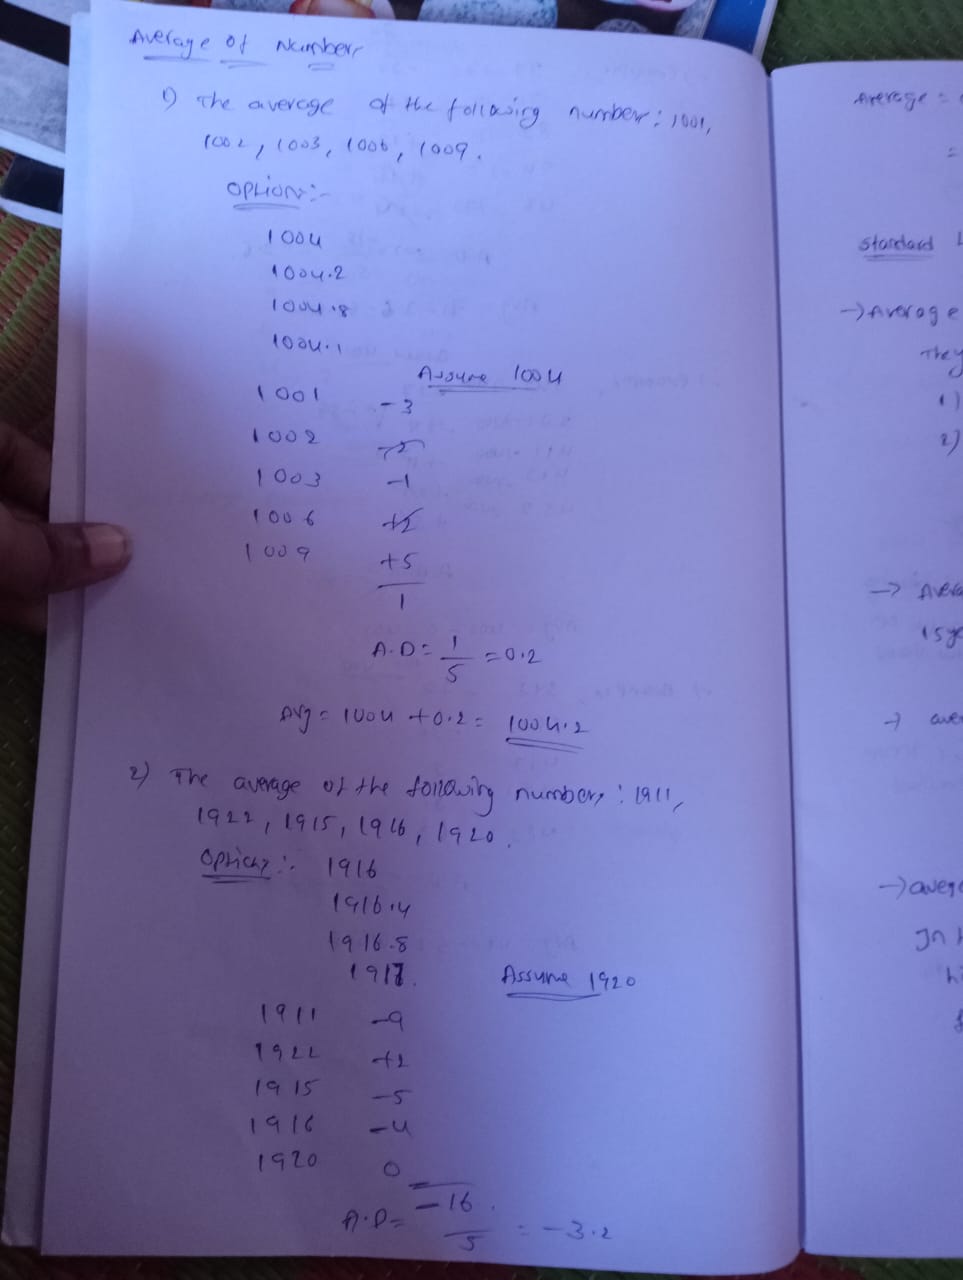 Average of Numbers
1) The average of the following number: 1001,
1002, 1003, 1006, 1009.
Option:-
1004
1004.2
1004.8
1004.1
Assume 1004
1001 -3
1002 -2
1003 -1
1006 +2
1009 +5
1
A.D = 1/5 = 0.2
Avg = 1004 + 0.2 = 1004.2
2) The average of the following numbers: 1911,
1922, 1915, 1916, 1920.
Options:- 1916
1916.4
1916.8
1917.
Assume 1920
1911 -9
1922 +2
1915 -5
1916 -4
1920 0
A.D = -16/5 = -3.2
Average =
=
Standard
→ Average
They
1)
2)
→
→
→
In